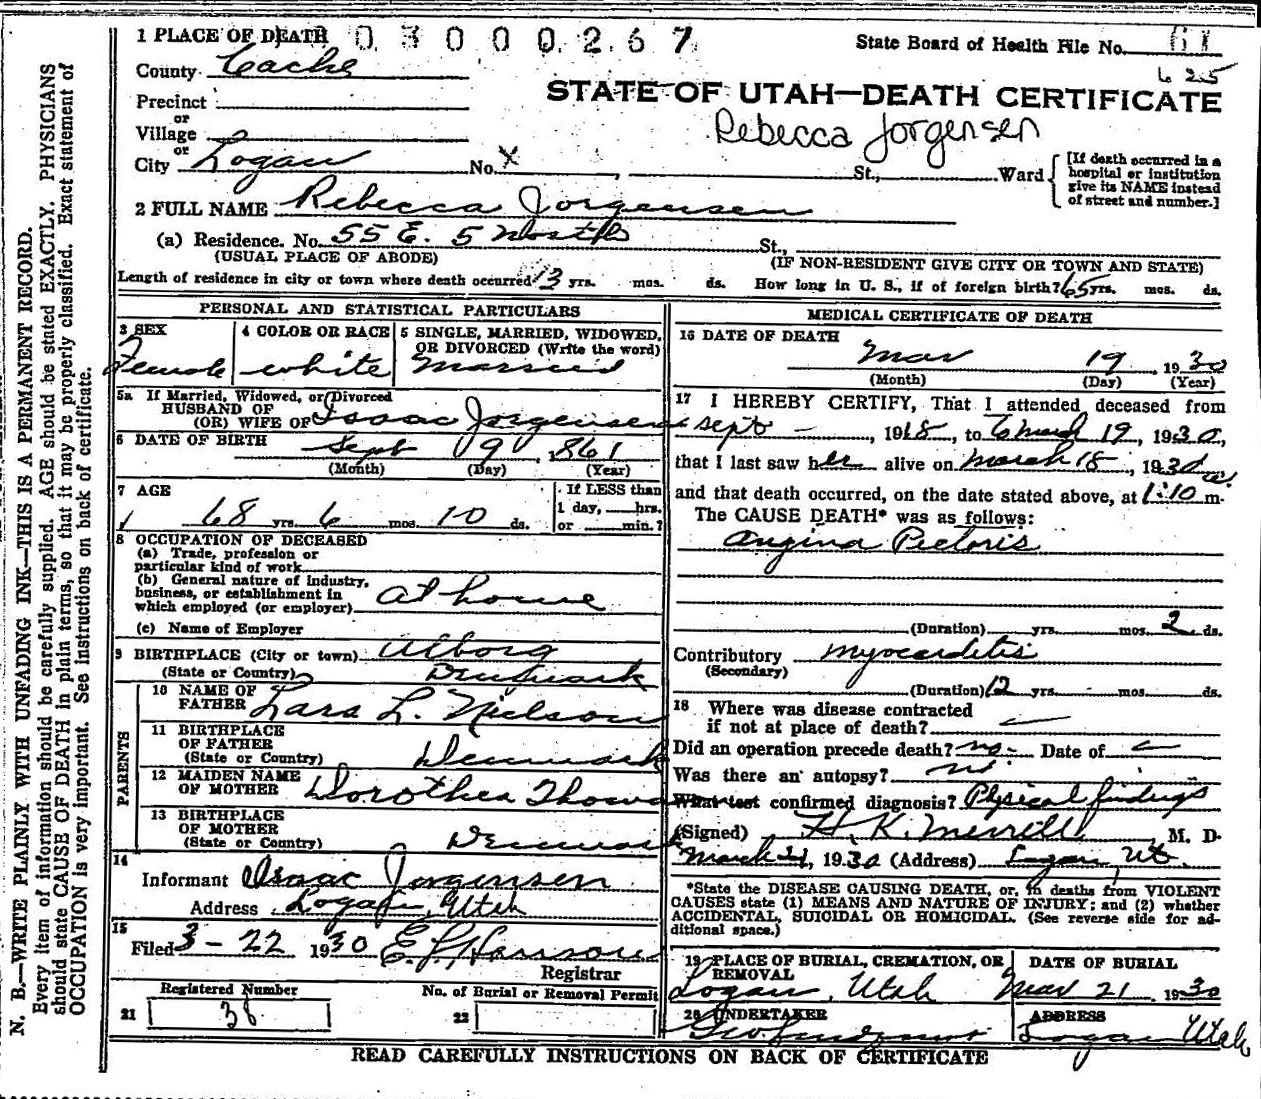 1 PLACE OF DEATH 03000267 State Board of Health File No. 61
County Cache 625
STATE OF UTAH—DEATH CERTIFICATE
Precinct
or
Village
Rebecca Jorgensen
or
City Logan No. X , St., Ward [If death occurred in a hospital or institution give its NAME instead of street and number.]
2 FULL NAME Rebecca Jorgensen
(a) Residence. No. 55 E. 5 North St.,
(USUAL PLACE OF ABODE) (IF NON-RESIDENT GIVE CITY OR TOWN AND STATE)
Length of residence in city or town where death occurred 13 yrs. mos. ds. How long in U. S., if of foreign birth? 65 yrs. mos. ds.
PERSONAL AND STATISTICAL PARTICULARS
3 SEX
Female
4 COLOR OR RACE
white
5 SINGLE, MARRIED, WIDOWED,
OR DIVORCED (Write the word)
Married
5a If Married, Widowed, or Divorced
HUSBAND OF
(OR) WIFE OF Isaac Jorgensen
6 DATE OF BIRTH Sept 9 1861
(Month) (Day) (Year)
7 AGE
68 yrs. 6 mos. 10 ds.
If LESS than
1 day, hrs.
or min.?
8 OCCUPATION OF DECEASED
(a) Trade, profession or
particular kind of work
(b) General nature of industry,
business, or establishment in
which employed (or employer) at home
(c) Name of Employer
9 BIRTHPLACE (City or town) Alborg
(State or Country) Denmark
PARENTS
10 NAME OF
FATHER Lars L. Nielson
11 BIRTHPLACE
OF FATHER
(State or Country) Denmark
12 MAIDEN NAME
OF MOTHER Dorothea
13 BIRTHPLACE
OF MOTHER
(State or Country) Denmark
14
Informant Isaac Jorgensen
Address Logan, Utah
15
Filed 3-22 1930 E. Harrison
Registrar
Registered Number
21 38
No. of Burial or Removal Permit
22
MEDICAL CERTIFICATE OF DEATH
16 DATE OF DEATH
Mar 19 , 1930
(Month) (Day) (Year)
17 I HEREBY CERTIFY, That I attended deceased from
sept — , 1918, to March 19, 1930,
that I last saw her alive on March 18 , 1930
and that death occurred, on the date stated above, at 1:10 a m.
The CAUSE DEATH* was as follows:
Angina Pectoris
(Duration) yrs. mos. 2 ds.
Contributory myocarditis
(Secondary)
(Duration) 12 yrs. mos. ds.
18 Where was disease contracted
if not at place of death?
Did an operation precede death? no - Date of
Was there an autopsy? no
What test confirmed diagnosis? Physical findings
(Signed) H. K. Merrill M. D.
March 21, 1930 (Address) Logan Ut.
*State the DISEASE CAUSING DEATH, or, in deaths from VIOLENT
CAUSES state (1) MEANS AND NATURE OF INJURY; and (2) whether
ACCIDENTAL, SUICIDAL OR HOMICIDAL. (See reverse side for ad-
ditional space.)
19 PLACE OF BURIAL, CREMATION, OR
REMOVAL
Logan, Utah
DATE OF BURIAL
Mar 21 1930
20 UNDERTAKER
ADDRESS
Logan Utah
READ CAREFULLY INSTRUCTIONS ON BACK OF CERTIFICATE
N. B.—WRITE PLAINLY WITH UNFADING INK—THIS IS A PERMANENT RECORD.
Every item of information should be carefully supplied. AGE should be stated EXACTLY. PHYSICIANS
should state CAUSE OF DEATH in plain terms, so that it may be properly classified. Exact statement of
OCCUPATION is very important. See instructions on back of certificate.